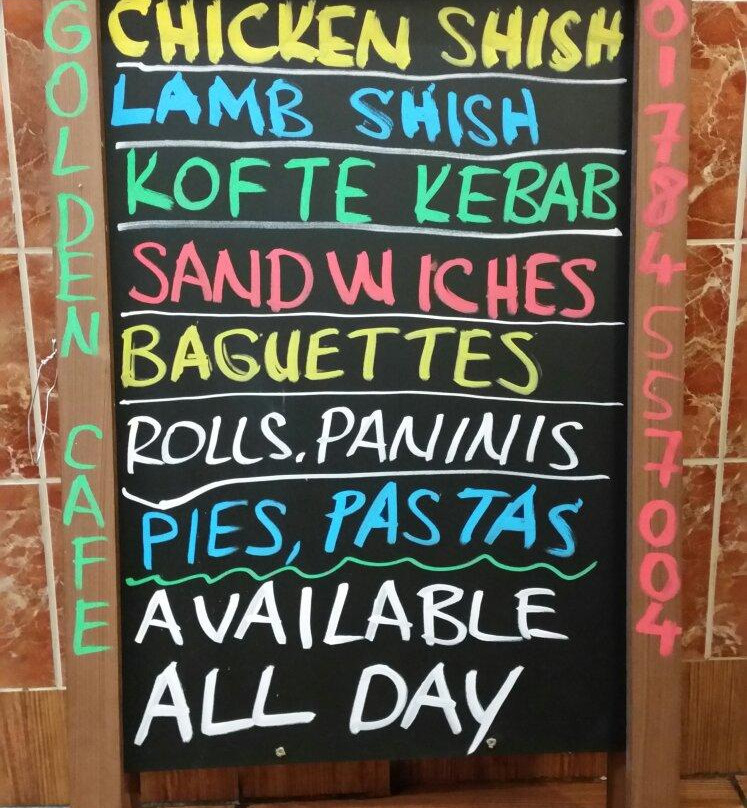 GOLDEN CAFE
CHICKEN SHISH
LAMB SHISH
KOFTE KEBAB
SANDWICHES
BAGUETTES
ROLLS. PANINIS
PIES, PASTAS
AVAILABLE
ALL DAY
01784557004